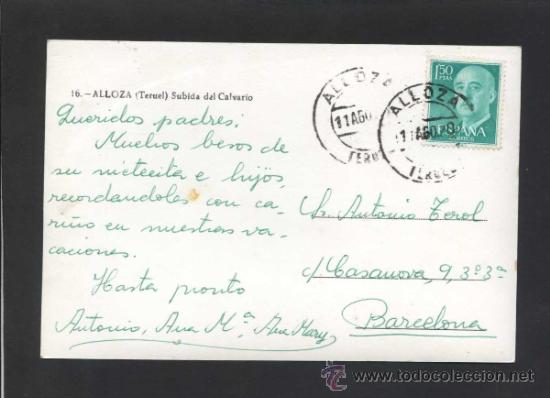 16.-ALLOZA (Teruel) Subida del Calvario
Queridos padres:
Muchos besos de
su nietecita e hijos,
recordandoles con ca-
riño en nuestras va-
caciones.
Hasta pronto
Antonio, Ana Mª, Ana Mary
ALLOZA
11 AGO
TERUEL
ALLOZA
11 AGO
TERUEL
1'50
PTAS
ESPAÑA
CORREOS
Sr. Antonio Terol
c/ Casanova, 9, 3º 3ª
Barcelona
todocoleccion
www.todocoleccion.net